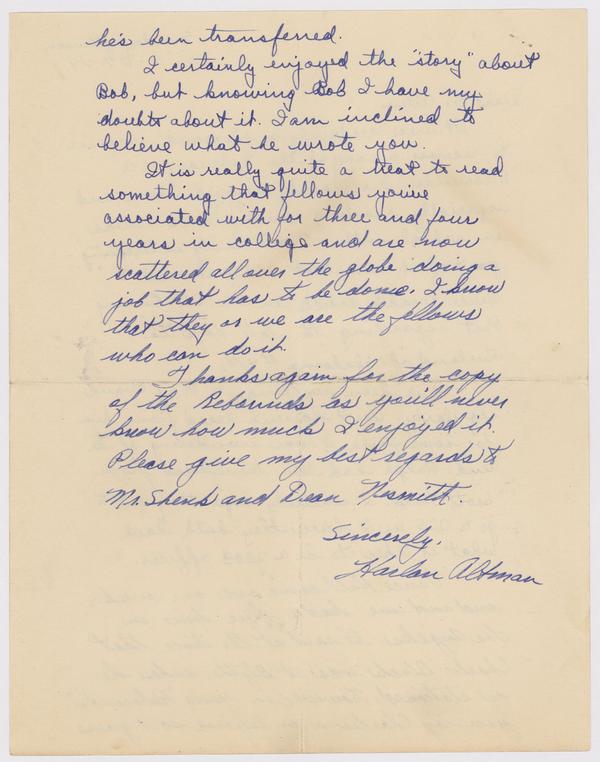 he's been transferred.
I certainly enjoyed the "story" about
Bob, but knowing Bob I have my
doubts about it. I am inclined to
believe what he wrote you.
It is really quite a treat to read
something that fellows you've
associated with for three and four
years in college and are now
scattered all over the globe doing a
job that has to be done. I know
that they or we are the fellows
who can do it.
Thanks again for the copy
of the Rebounds as you'll never
know how much I enjoyed it.
Please give my best regards to
Mr. Shenk and Dean Nesmith.
Sincerely,
Harlan Altman